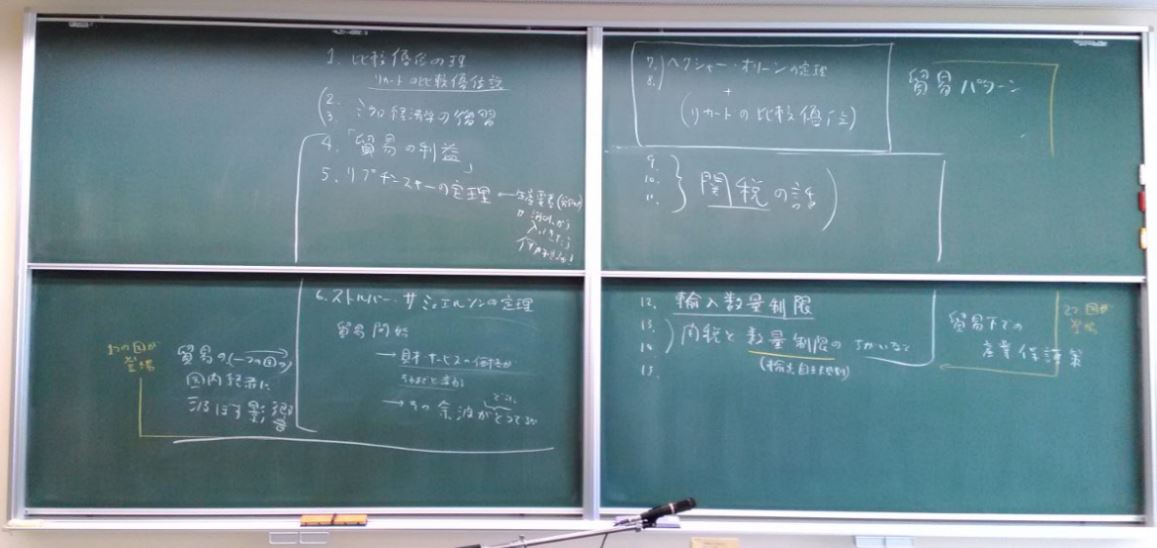 1. 比較優位の理
リカードの比較優位説
2.
3. ミクロ経済学の復習
4. 「貿易の利益」
5. リプチンスキーの定理 ← 生産要素
6. ストルパー・サミュエルソンの定理
貿易開始
→ 財・サービスの価格が
→ その余波がどうでるか
1つの国が
登場
貿易の(一つの国の)
国内経済に
及ぼす影響
7. ヘクシャー・オリーンの定理
8.
+
(リカードの比較優位)
貿易パターン
9.
10.
11.
関税の話
12. 輸入数量制限
13.
14. 関税と数量制限のちがいなど
15.
(輸出自主規制)
貿易下での
産業保護策
2つの国が
登場